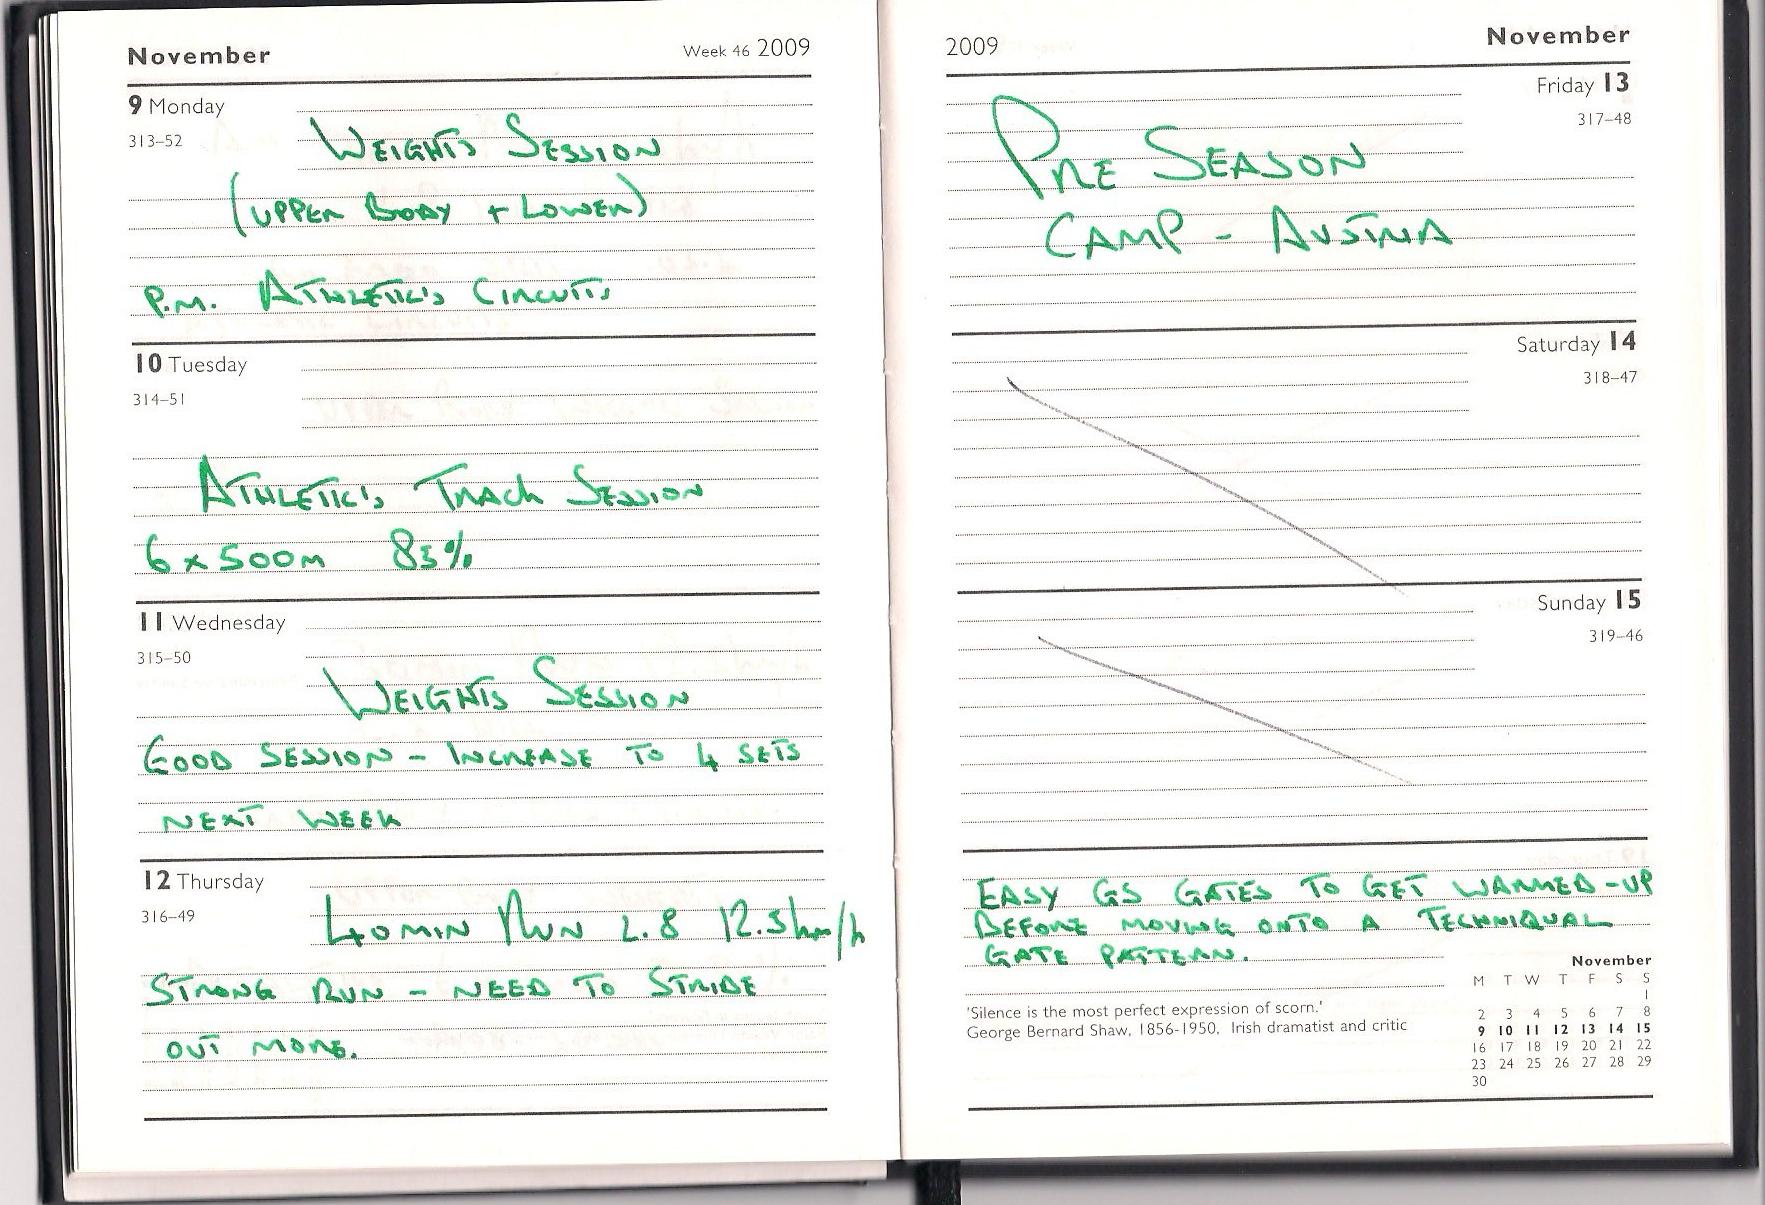 November
Week 46 2009
9 Monday
313–52
WEIGHTS SESSION
(UPPER BODY + LOWER)
P.M. ATHLETIC'S CIRCUITS
10 Tuesday
314–51
ATHLETIC'S TRACK SESSION
6 x 500M 85%
11 Wednesday
315–50
WEIGHTS SESSION
GOOD SESSION - INCREASE TO 4 SETS
NEXT WEEK
12 Thursday
316–49
40 MIN RUN L.8 12.5km/h
STRONG RUN - NEED TO STRIDE
OUT MORE.
2009
November
Friday 13
317–48
PRE SEASON
CAMP - AUSTRIA
Saturday 14
318–47
Sunday 15
319–46
EASY GS GATES TO GET WARMED-UP
BEFORE MOVING ONTO A TECHNIQUAL
GATE PATTERN.
'Silence is the most perfect expression of scorn.'
George Bernard Shaw, 1856-1950, Irish dramatist and critic
November
M T W T F S S
1
2 3 4 5 6 7 8
9 10 11 12 13 14 15
16 17 18 19 20 21 22
23 24 25 26 27 28 29
30